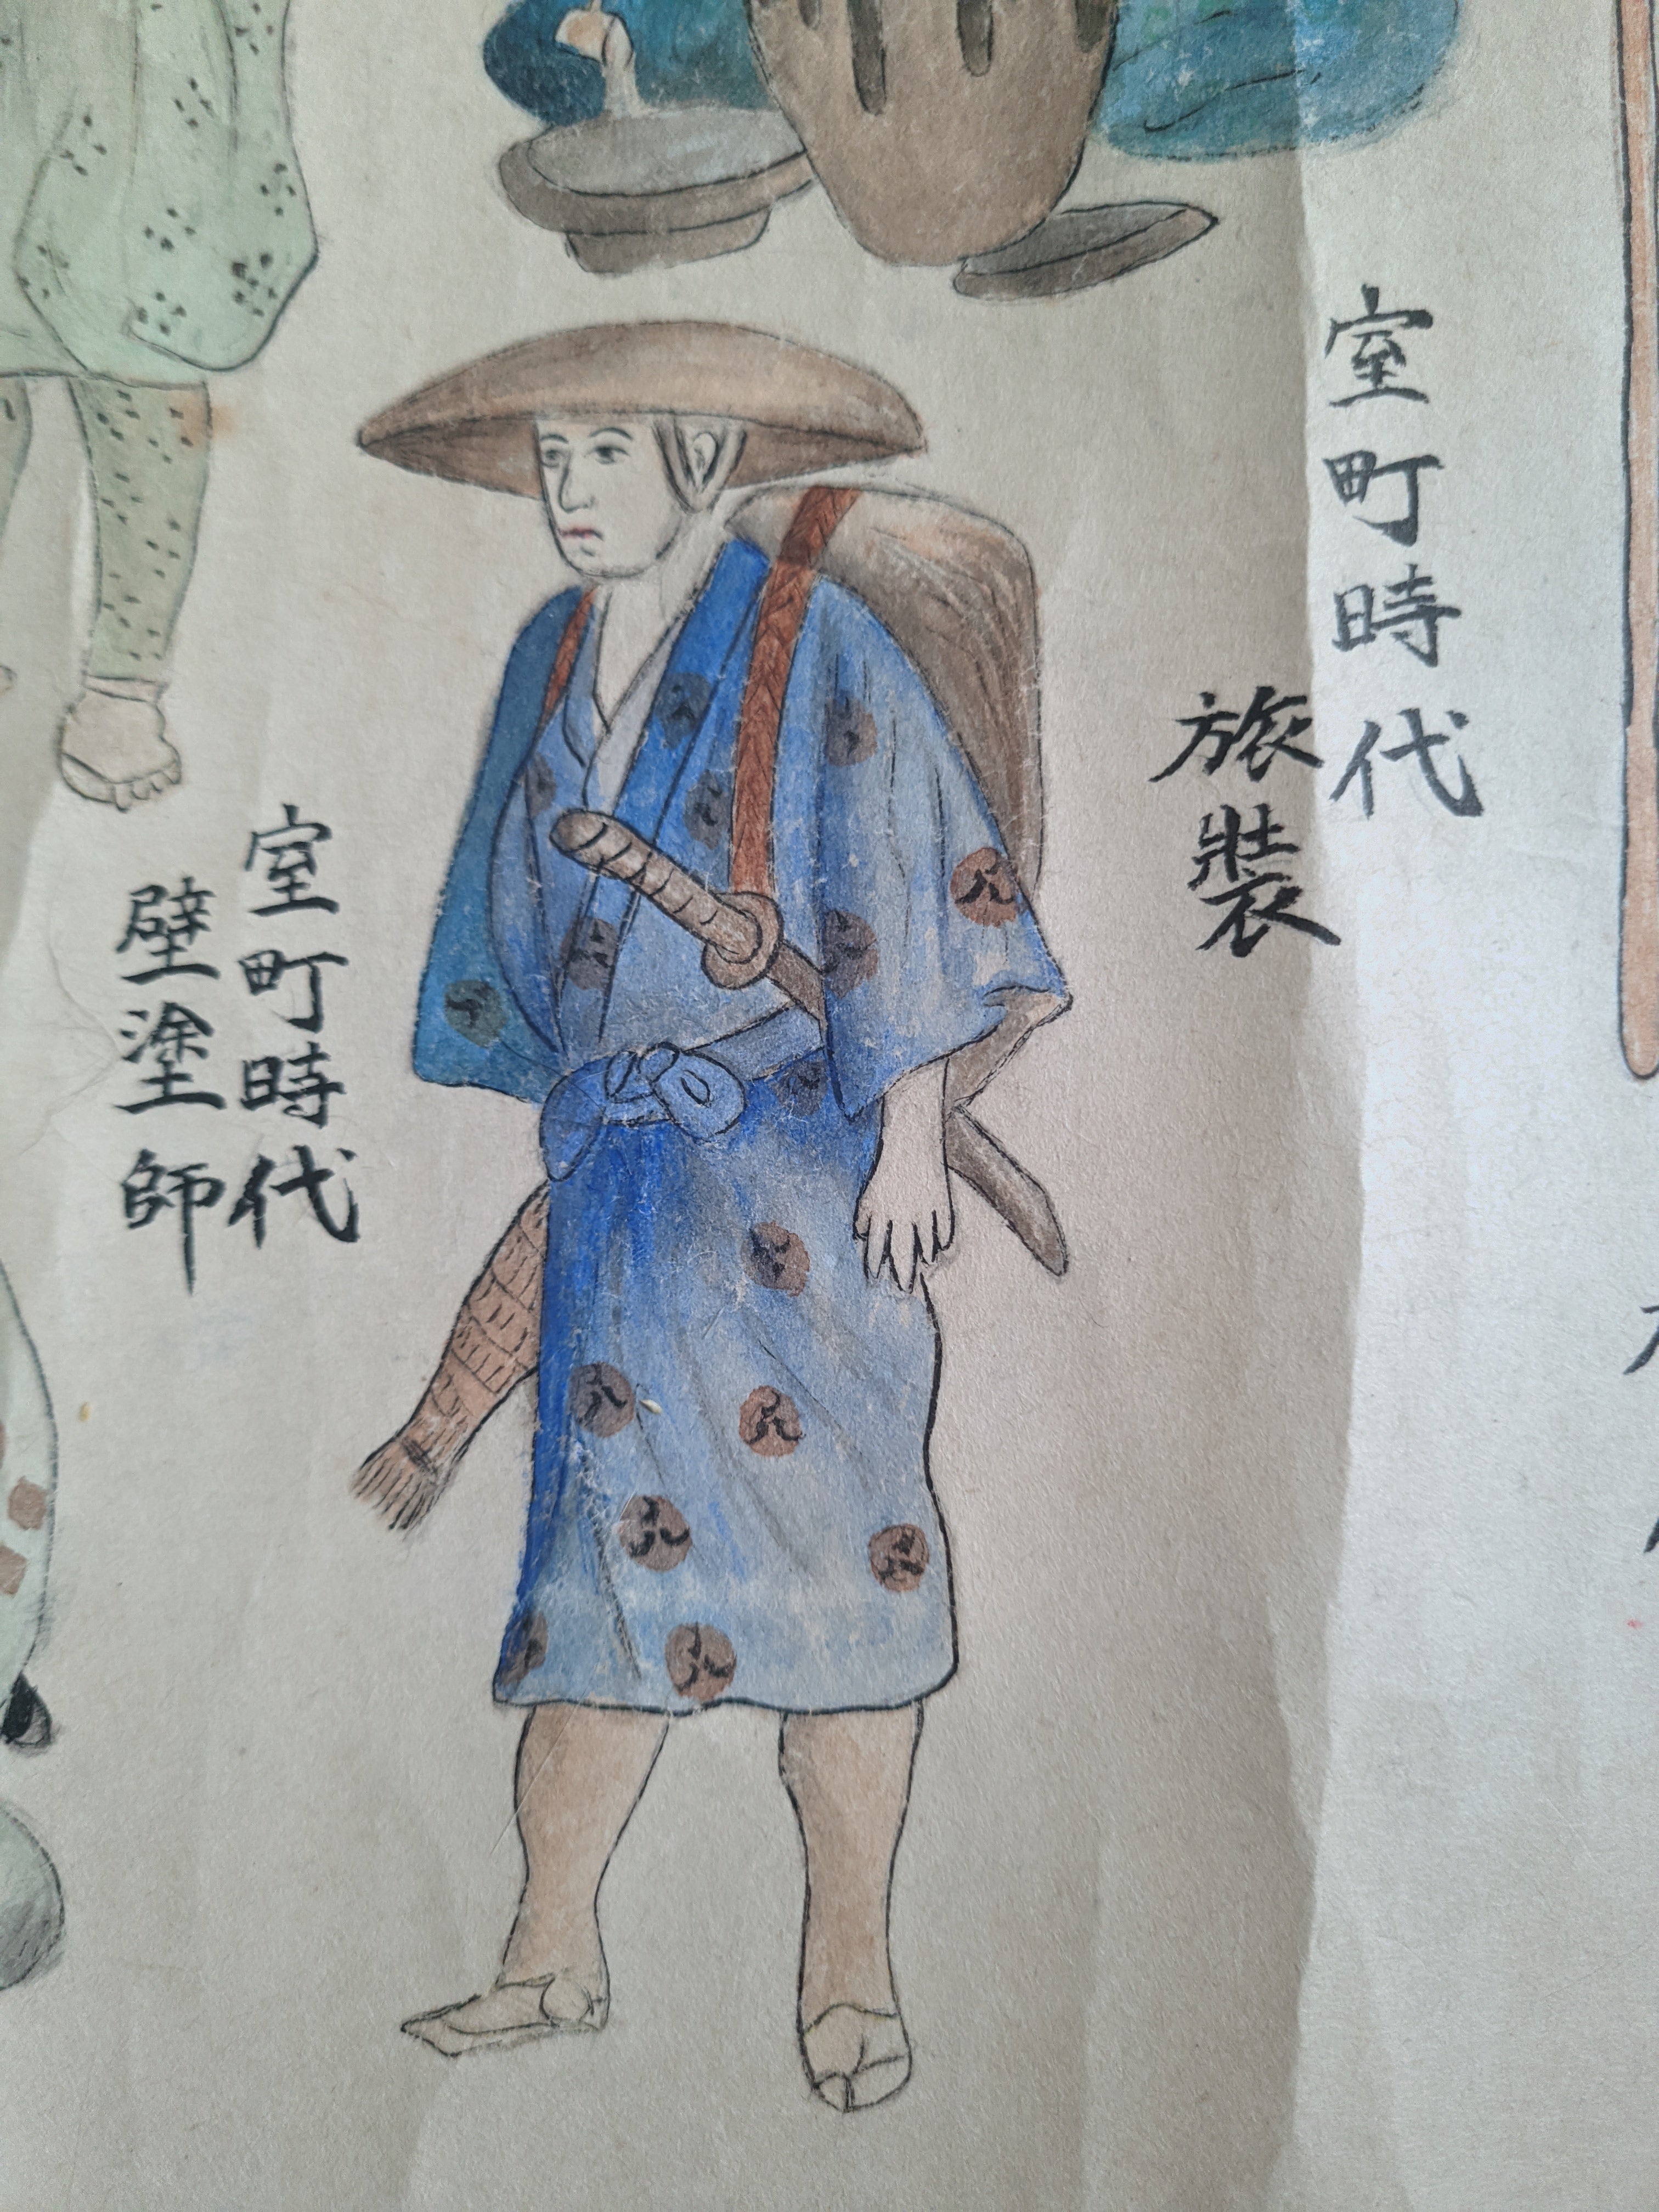 室町時代
旅装
室町時代
壁塗師